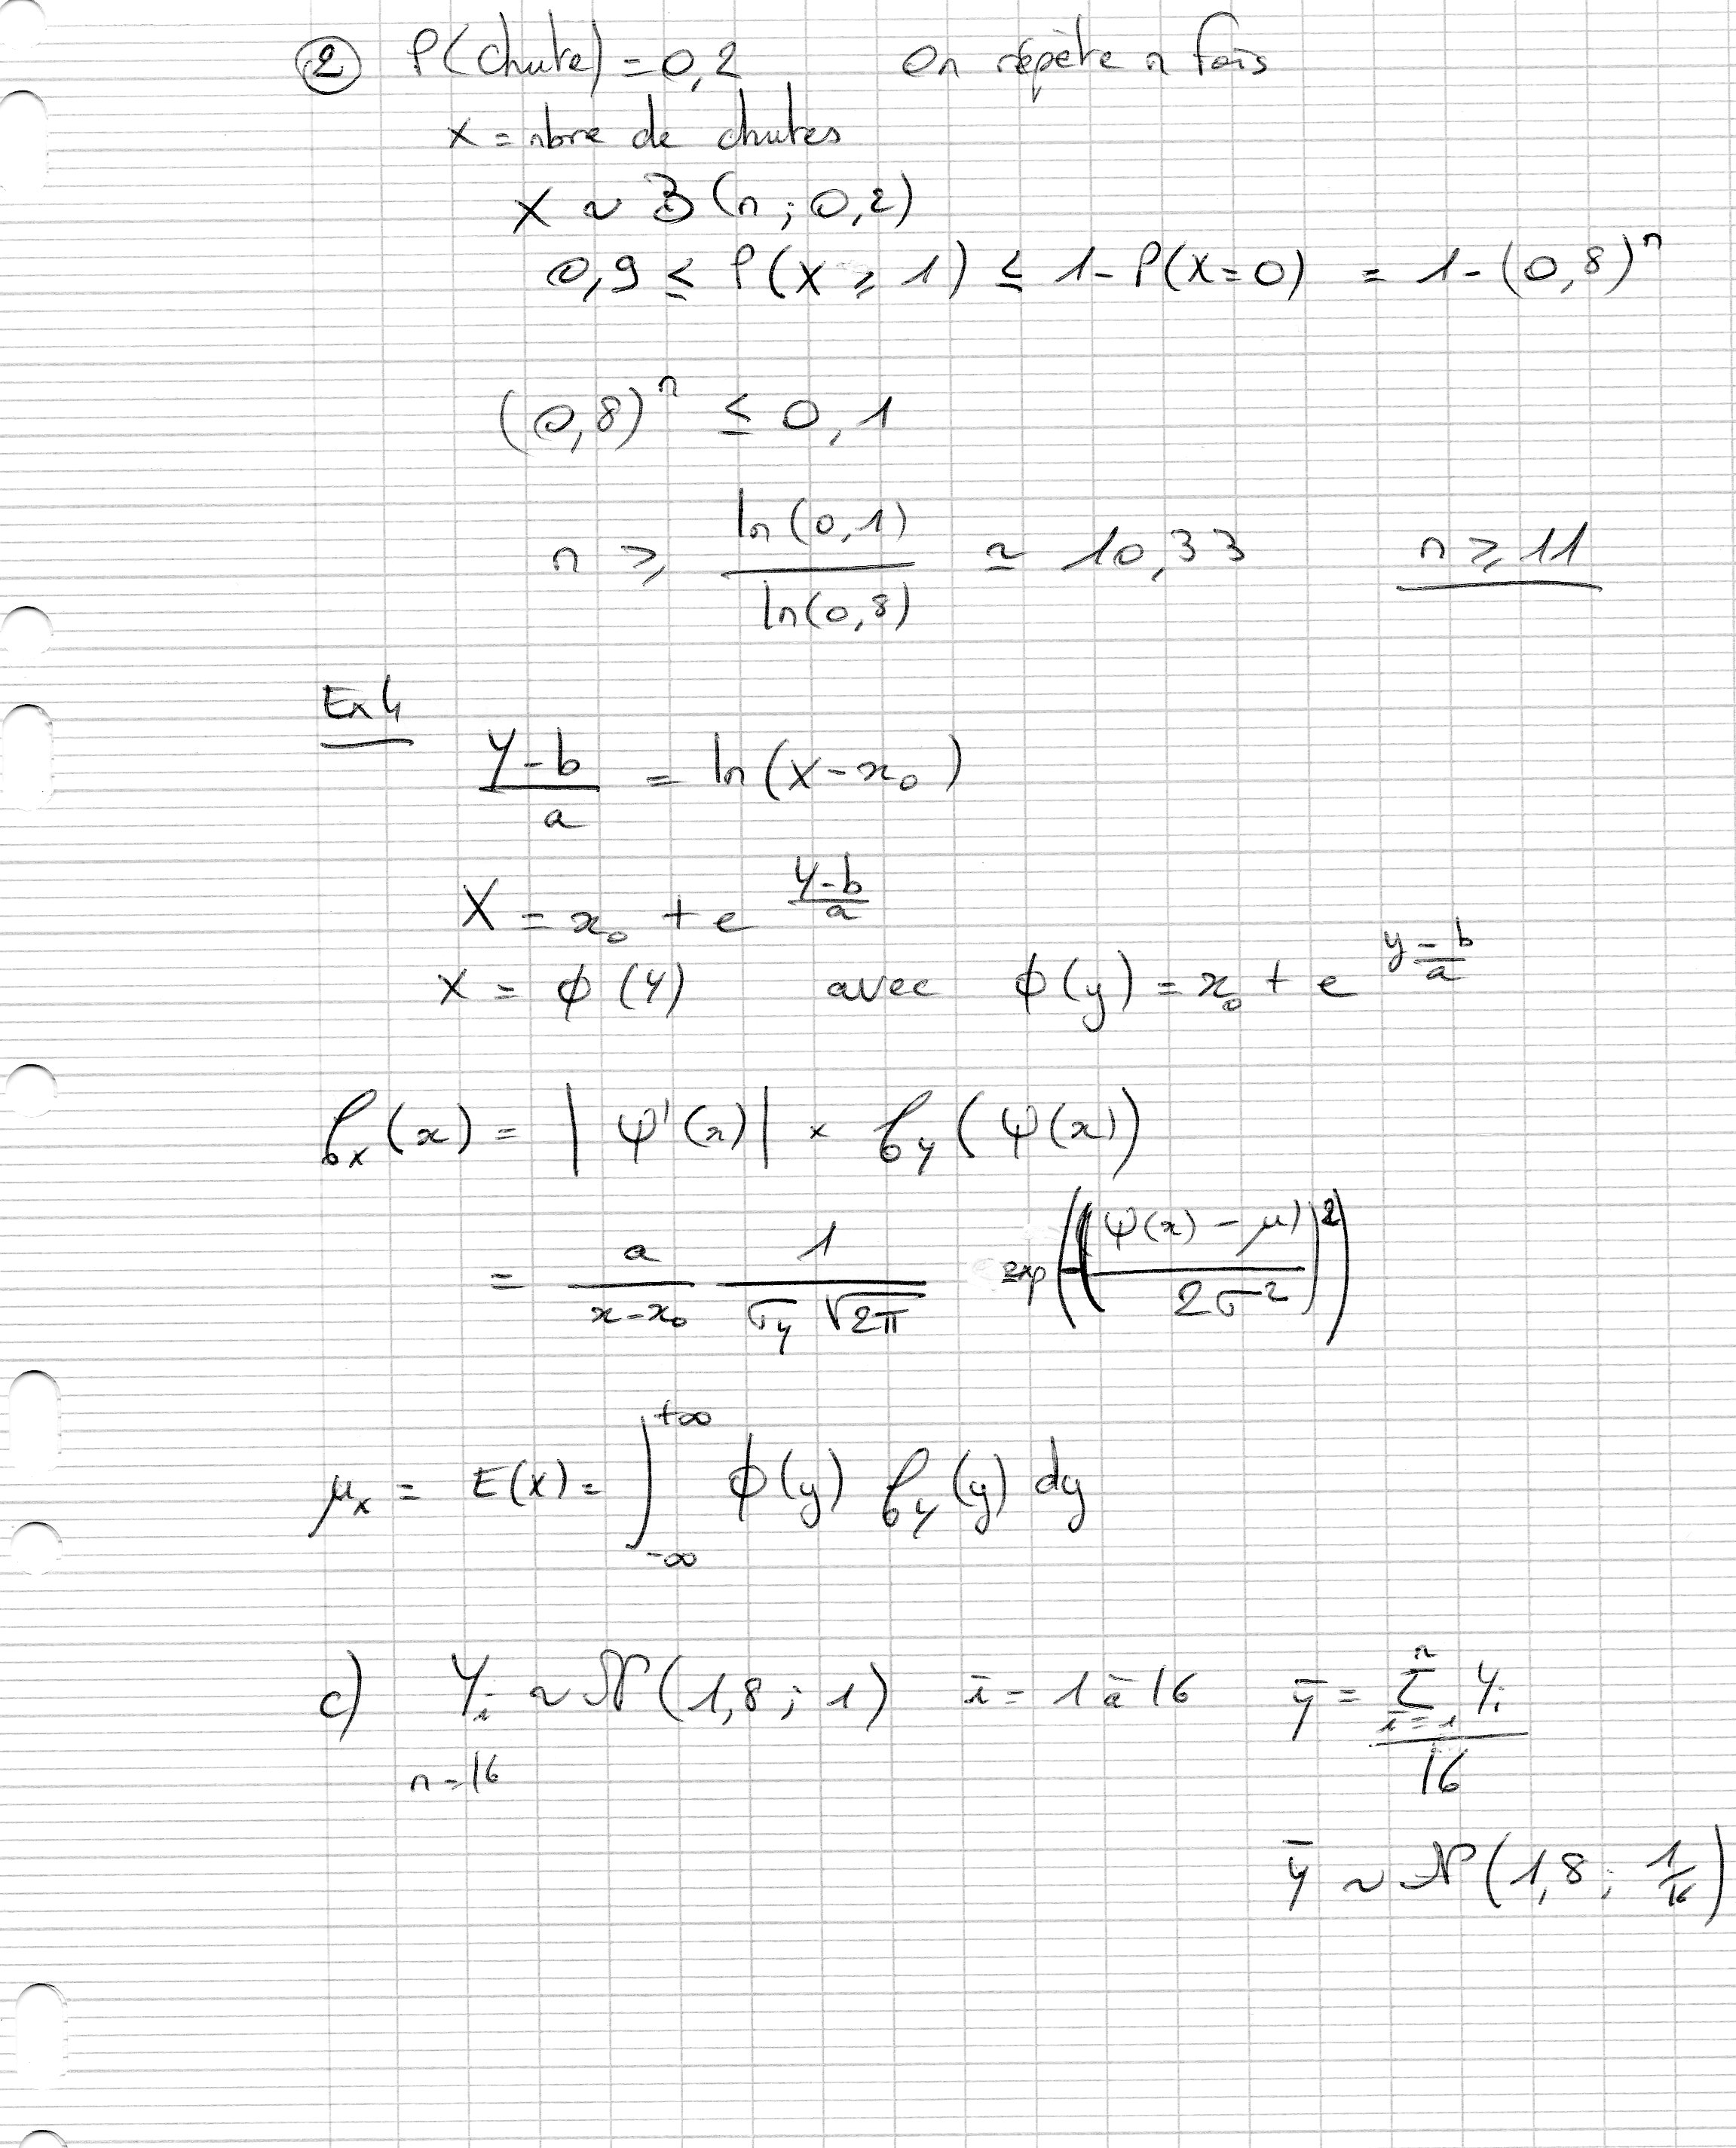 ② P(chute) = 0,2 On répète n fois
X = nbre de chutes
X ~ B(n ; 0,2)
0,9 ≤ P(X ≥ 1) ≤ 1 - P(X = 0) = 1 - (0,8)^n
(0,8)^n ≤ 0,1
n ≥ ln(0,1) / ln(0,8) ≃ 10,33 n ≥ 11
Ex 4
(Y - b) / a = ln(X - x₀)
X = x₀ + e^((Y-b)/a)
X = φ(Y) avec φ(y) = x₀ + e^((y-b)/a)
f_X(x) = |ψ'(x)| × f_Y(ψ(x))
= a/(x-x₀) 1/(σ_Y √(2π)) exp(-((ψ(x) - μ)/(2σ²))²)
μ_X = E(X) = ∫_{-∞}^{+∞} φ(y) f_Y(y) dy
c) Y_i ~ N(1,8 ; 1) i = 1 à 16 Ȳ = (Σ_{i=1}^{n} Y_i) / 16
n = 16
Ȳ ~ N(1,8 ; 1/16)